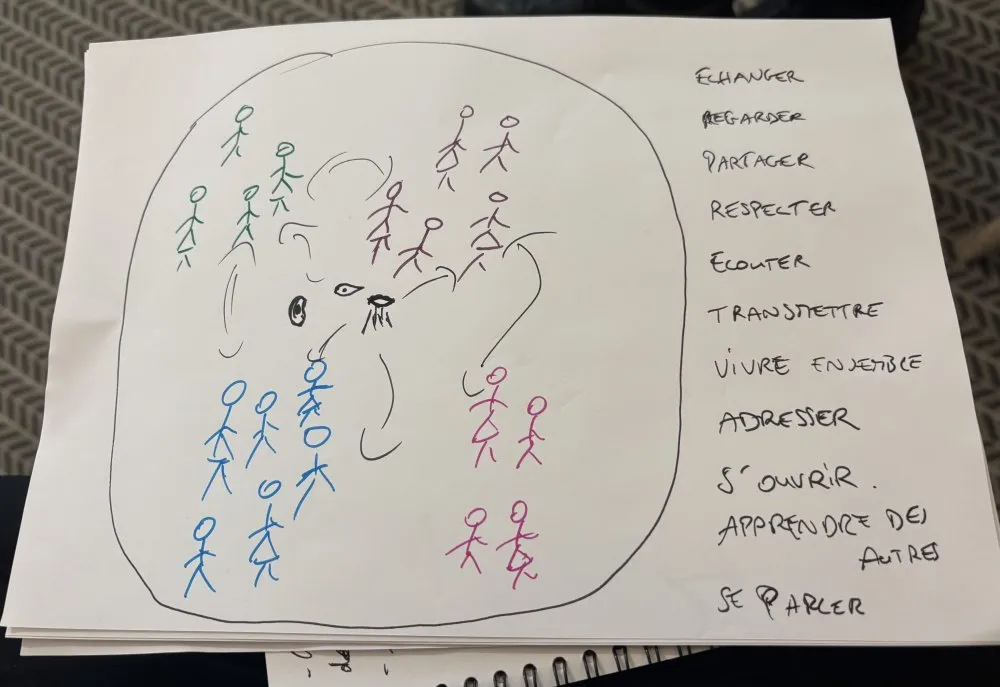 ECHANGER
REGARDER
PARTAGER
RESPECTER
ECOUTER
TRANSMETTRE
VIVRE ENSEMBLE
ADRESSER
S'OUVRIR.
APPRENDRE DES
AUTRES
SE PARLER